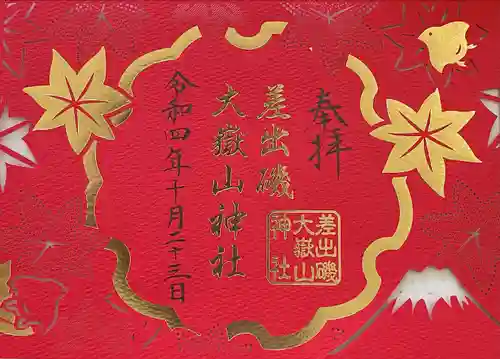 奉拝
差出磯
大嶽山神社
差出磯
大嶽山
神社
令和四年十月二十三日